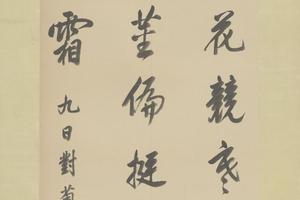 花競寒
莖偏挺
霜
九日對菊